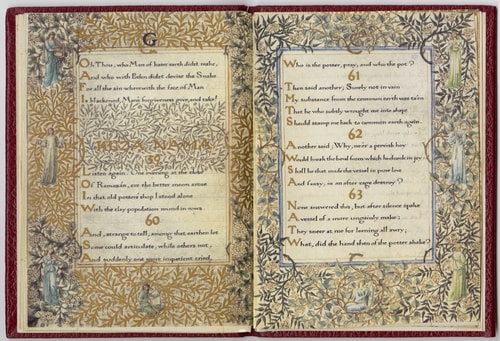 Oh Thou, who Man of baser earth didst make,
And who with Eden didst devise the Snake
For all the sin wherewith the face of Man
Is blackened, Man's forgiveness give, and take!
KUZA NAMA
59
Listen again. One evening at the close
Of Ramazan, ere the better moon arose
In that old potters shop I stood alone
With the clay population round in rows
60
And, strange to tell, among that earthen lot
Some could articulate, while others not;
And suddenly one more impatient cried,
Who is the potter, pray, and who the pot?
61
Then said another; Surely not in vain
My substance from the common earth was ta'en
That he who subtly wrought me into shape
Should stamp me back to common earth again.
62
Another said; Why, ne'er a peevish boy
Would break the bowl from which he drank in joy
Shall he that made the vessel in pure love
And fancy, in an after rage destroy?
63
None answered this; but after silence spake
A vessel of a more ungainly make;
They sneer at me for leaning all awry;
What, did the hand then of the potter shake?